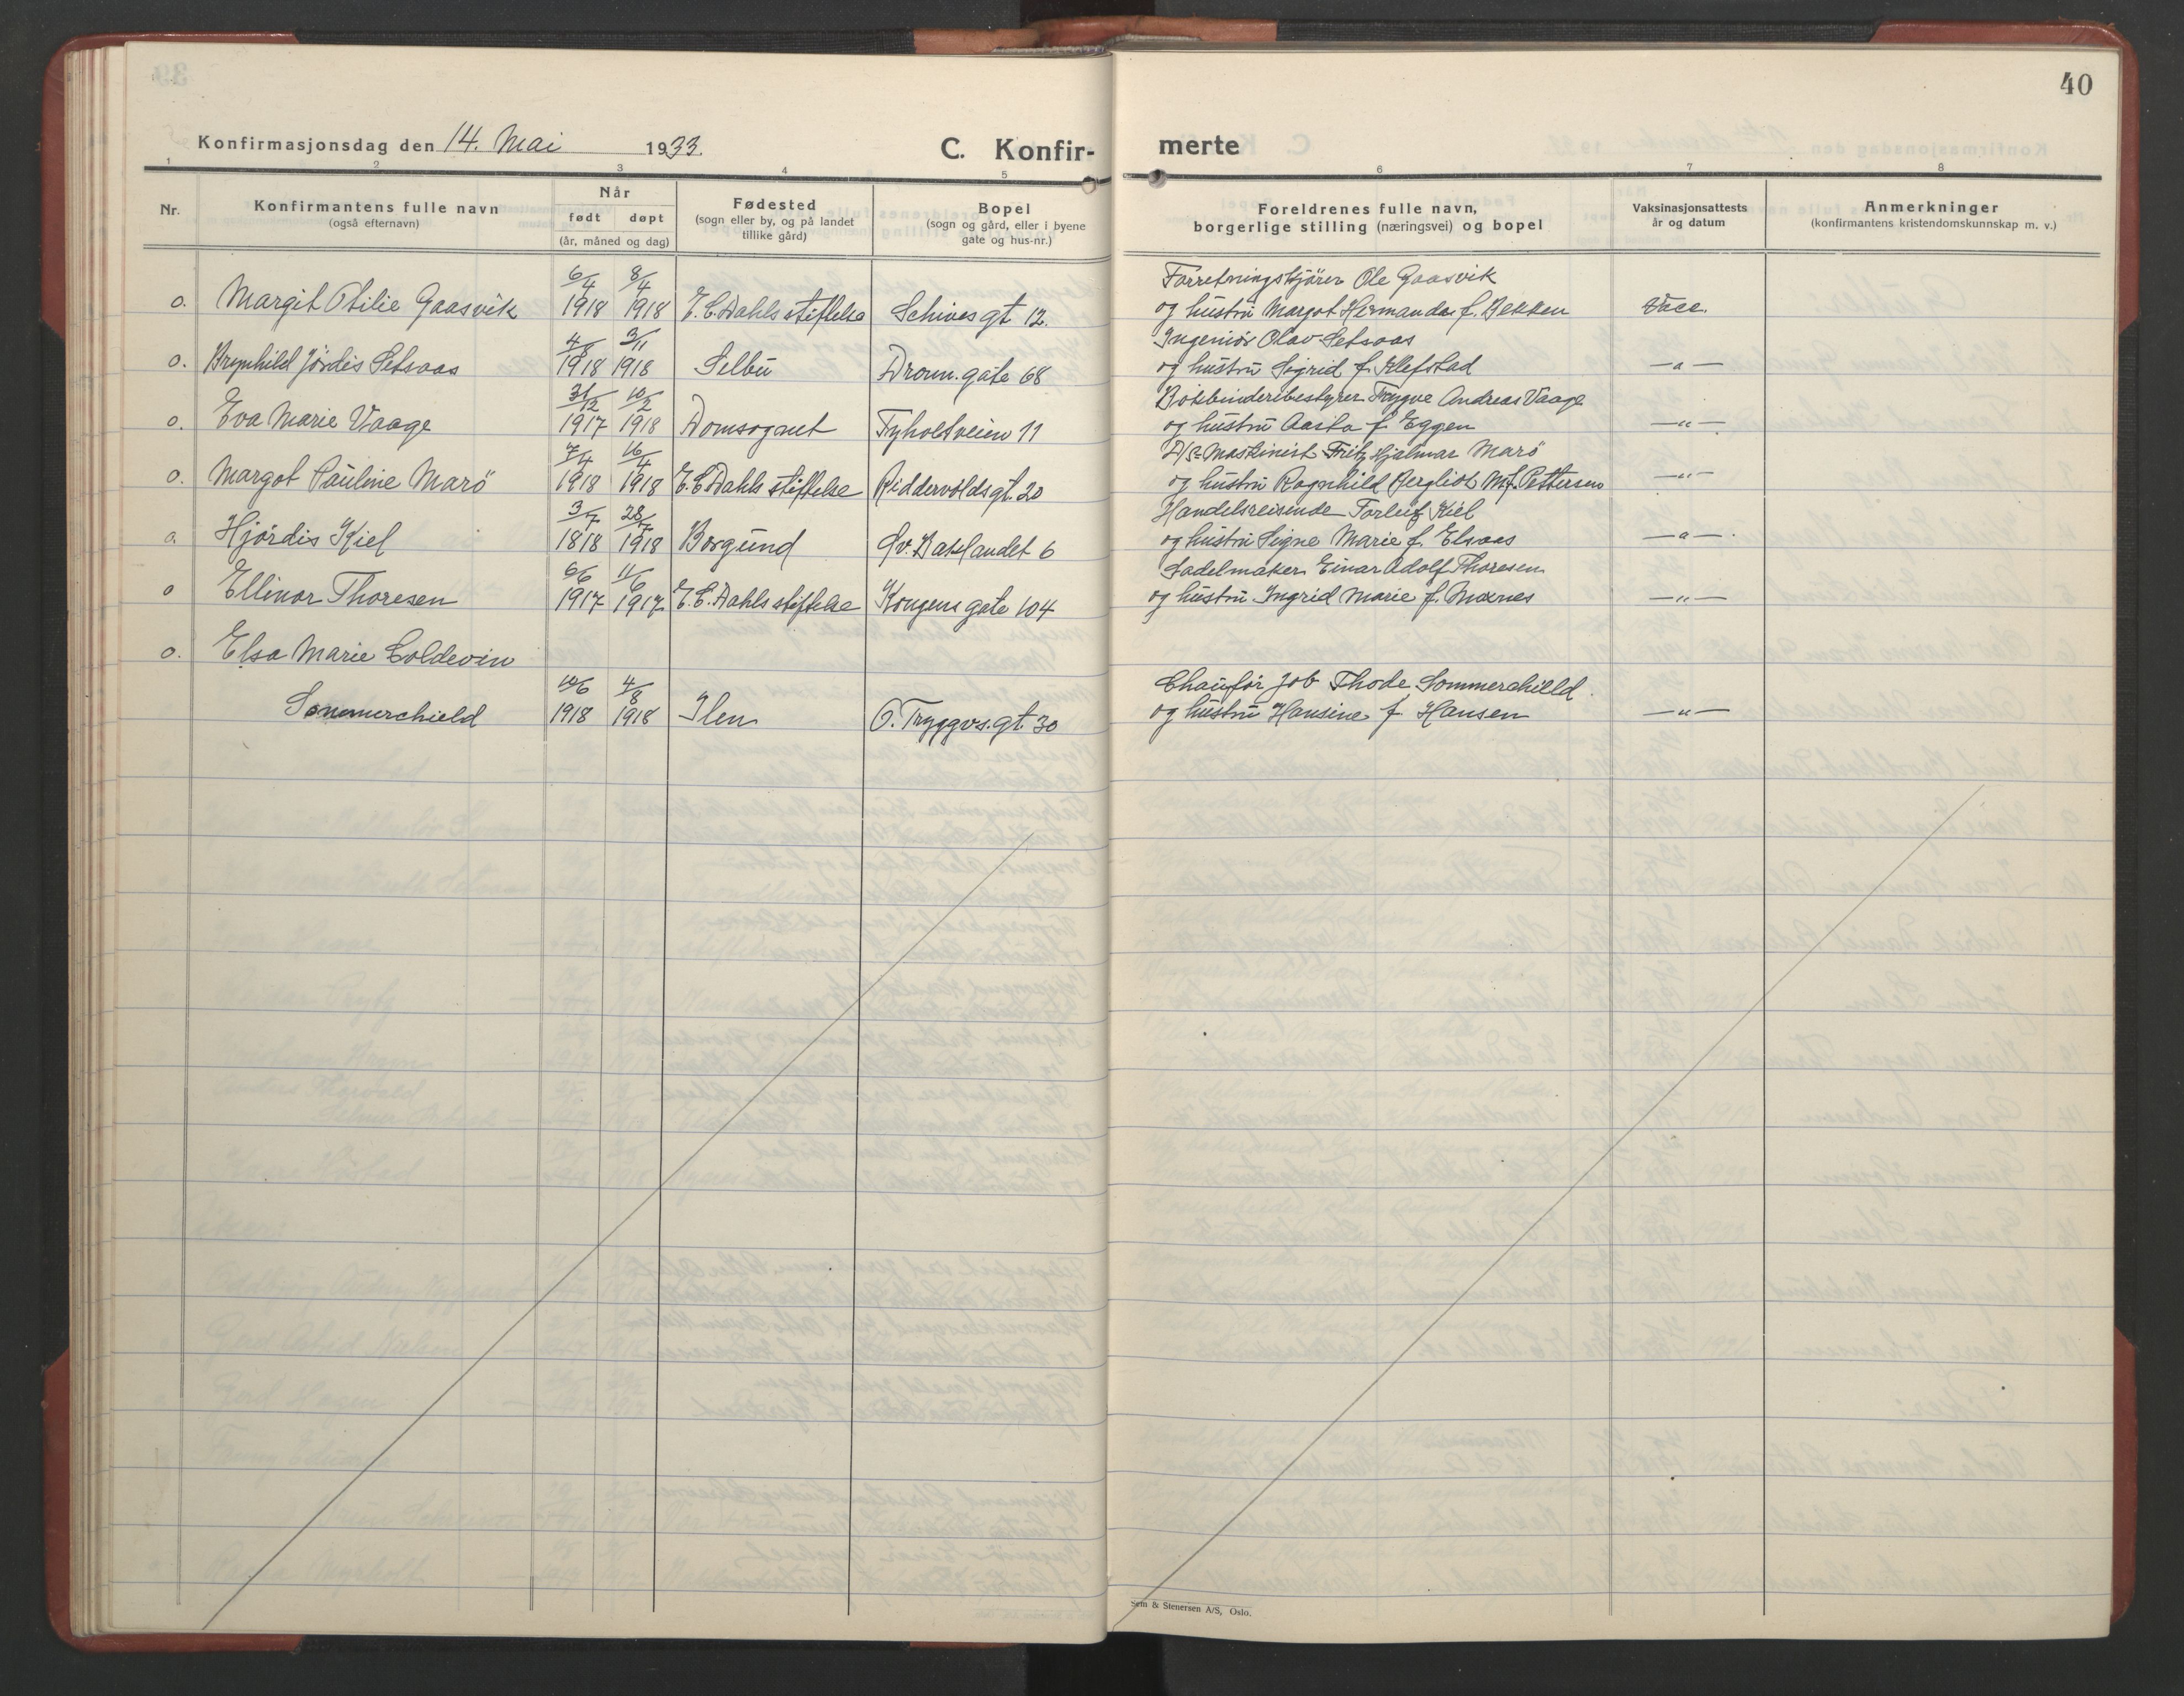 40
Konfirmasjonsdag den 14. Mai 1933.
C. Konfir-
merte
1 2 3 4 5 6 7 8
Nr.
Konfirmantens fulle navn
(også efternavn)
Når
født døpt
(år, måned og dag)
Fødested
(sogn eller by, og på landet
tillike gård)
Bopel
(sogn og gård, eller i byene
gate og hus-nr.)
Foreldrenes fulle navn,
borgerlige stilling (næringsvei) og bopel
Vaksinasjonsattests
år og datum
Anmerkninger
(konfirmantens kristendomskunnskap m. v.)
6/4 8/4 Forretningskjører Ole Gaasvik
o. Margit Otilie Gaasvik 1918 1918 E.C. Dahls stiftelse Schives gt 12. og hustru Margot Hermanda f. Bekken vacc.
3/11 Ingeniör Olav Setsaas
o. Brynhild Jördis Setsaas 1918 1918 Selbu Dronn. gate 68 og hustru Sigrid f. Klefstad —"—
31/12 10/2 Bokbinderibestyrer Trygve Andreas Vaage
o. Eva Marie Vaage 1917 1918 Domsognet Tyholtveien 11 og hustru Aasta f. Eggen —"—
7/4 16/4 D/S-Maskinist Fritz Hjalmar Marö
o. Margot Pauline Marö 1918 1918 E.C. Dahls stiftelse Riddervoldsgt. 20 og hustru Ragnhild Bergliot M. f. Pettersen —"—
3/7 28/7 Handelsreisende Torleif Kiel
o. Hjördis Kiel 1818 1918 Borgund Öv. Baklandet 6 og hustru Signe Marie f. Elsaas —"—
6/6 11/6 Sadelmaker Einar Adolf Thoresen
o Ellinor Thoresen 1917 1917 E.C. Dahls stiftelse Kongens gate 104 og hustru Ingrid Marie f. Moxnes —"—
o. Elsa Marie Coldevin
4/8 Chauför Job Thode Sommerchield.
Sommerchield 1918 1918 Ilen O. Tryggvs. gt. 30 og hustru Hansine f. Hansen —"—
Sem & Stenersen A/S, Oslo.